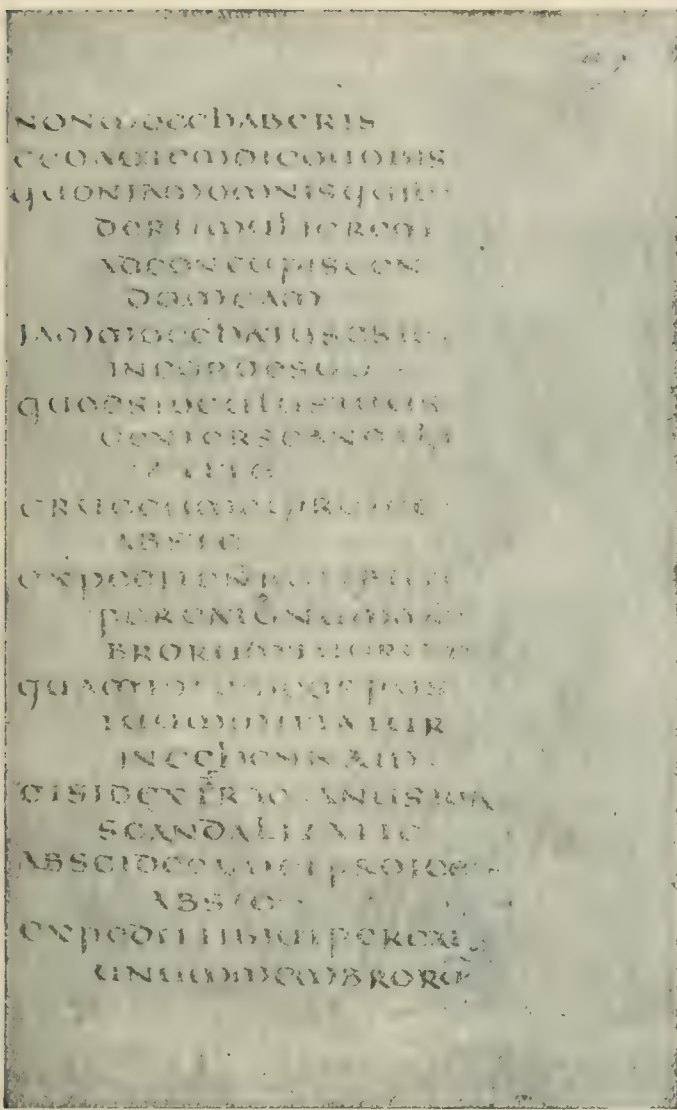 NONMOECHABERIS
EGOAUTEMDICOUOBIS
QUONIAMOMNISQUI
DERITMULIEREM
ADCONCUPISCEN
DAMEAM
IAMMOECHATUSESTE
INCORDESUO
QUODSIOCULUSTUUS
DEXTERSCANDALI
ZATTE
ERUEEUMETPROICE
ABSTE
EXPEDITENIM
PEREATUNUMMEM
BRORUMTUORUM
QUAMTOTUMCORPUS
TUUMMITTATUR
INGEHENNAM
ETSIDEXTRA MANUSTUA
SCANDALIZATTE
ABSCIDEEAMETPROICE
ABSTE
EXPEDITTIBIUTPEREAT
UNUMMEMBRORU